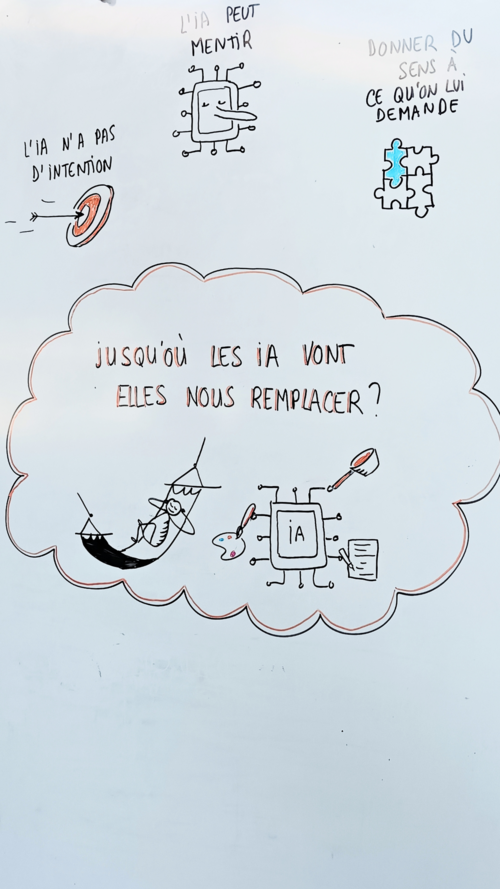 L'iA PEUT
MENTiR
DONNER DU
SENS À
CE QU'ON LUi
DEMANDE
L'iA N'A PAS
D'iNTENTiON
JUSQU'OÙ LES iA VONT
ELLES NOUS REMPLACER ?
iA